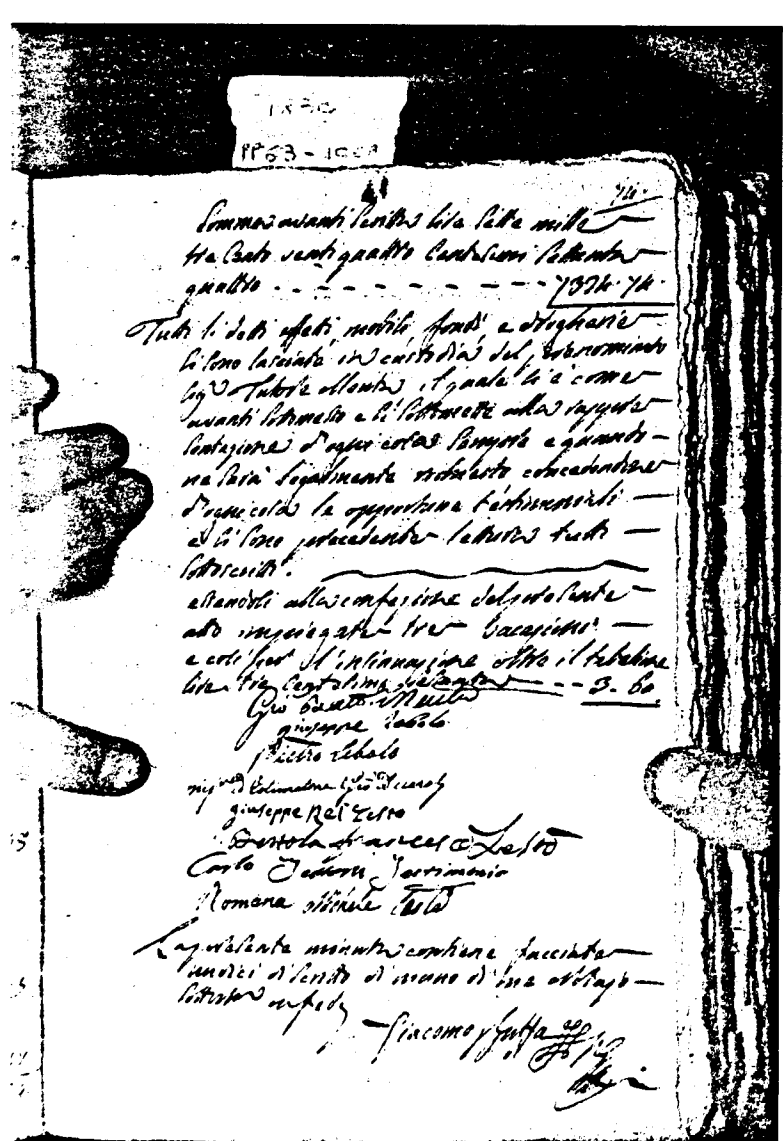 1830
PP63 -
74.
Somma avanti scritta lire sette mille
tre cento venti quattro centesimi settanta
quattro - - - - - - - - - 7324.74.
Tutti li detti effetti, mobili, fondi e drogherie
si sono lasciate in custodia del prenominato
Sigr Tutore il quale si è come
avanti sottomesso e si sottomette alla
d'ogni cosa sempre e quando
ne sarà legalmente concedendone
d'ogni cosa le opportune testimoniali
e si sono precedente lettura tutti
sottoscritti.
essendosi alla confezione del presente
atto impiegate tre vacazioni
e così per l'insinuazione oltre il tabellione
lire tre centesimi sessanta - - 3.60
Gio
giuseppe Lebolo
Pietro Lebolo
Gio
giuseppe Rei Testo
Bertola Francesco Testo
Carlo Testimonio
Romana Michele Testo
La presente minuta contiene facciate
undici di scritto di mano di me Notajo
sottoscritto in fede
Giacomo